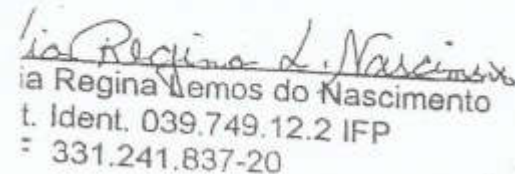 ia Regina L. Nascimento
ia Regina Lemos do Nascimento
t. Ident. 039.749.12.2 IFP
331.241.837-20